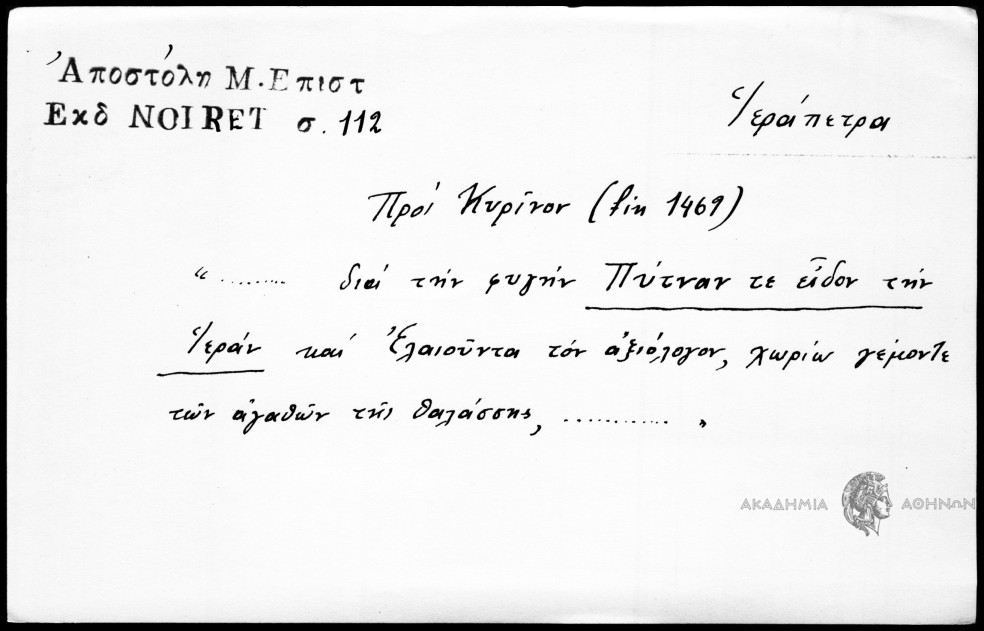 Ἀποστόλη Μ. Επιστ
Εκδ NOIRET σ. 112
Ἱεράπετρα
Πρός Κυρῖνον (fin 1469)
"......... διά τήν φυγήν Πύτναν τε εἶδον τήν
Ἱεράν καί Ἐλαιοῦντα τόν ἀξιόλογον, χωρίω γέμοντε
τῶν ἀγαθῶν τῆς θαλάσσης, ........... "
ΑΚΑΔΗΜΙΑ ΑΘΗΝΩΝ